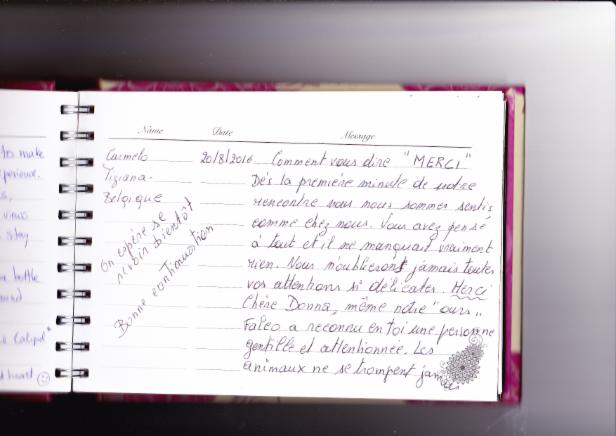 to make
perience.
s,
views
stay
a bottle
and
Calipol"
d heart ☺
Name Date Message
Carmelo 20/8/2016 Comment vous dire "MERCI"
Tiziana. Dés la première minute de notre
Belgique rencontre vous nous sommes sentis
comme chez nous. Vous avez pensé
à tout et il ne manquait vraiment
rien. Nous n'oublierons jamais toutes
vos attentions si délicates. Merci
Chère Donna, même notre "ours"
Falco a reconnu en toi une personne
gentille et attentionnée. Les
animaux ne se trompent jamais
On espère se
revoir bientôt
Bonne continuation